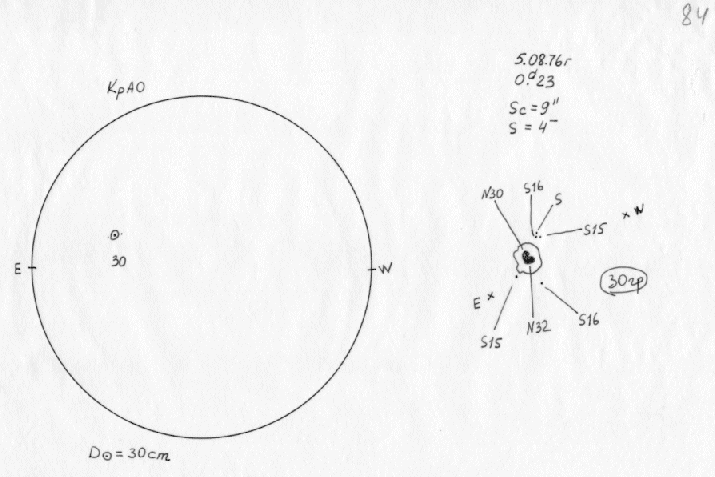 84
КрАО
5.08.76г
0.ᵈ23
Sc = 9"
S = 4⁻
E
W
30
D⊙ = 30cm
N30
S16
S
S15
× W
30гр
E ×
S15
N32
S16